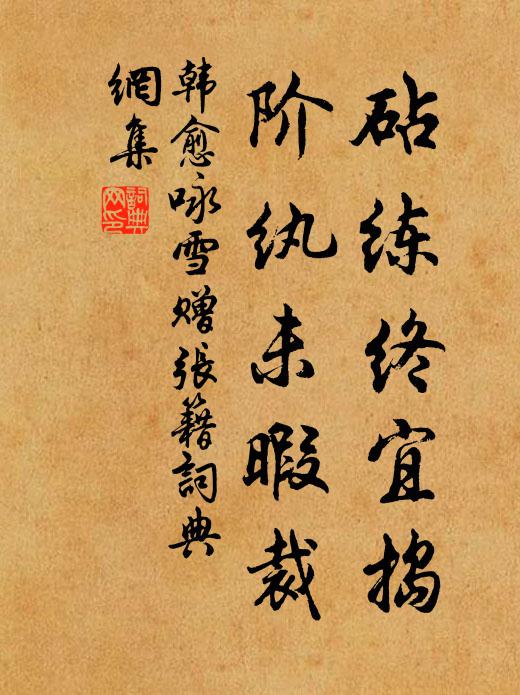 砧练终宜捣
阶纨未暇裁
韩愈咏雪赠張籍詞典
網集
詞典
网印